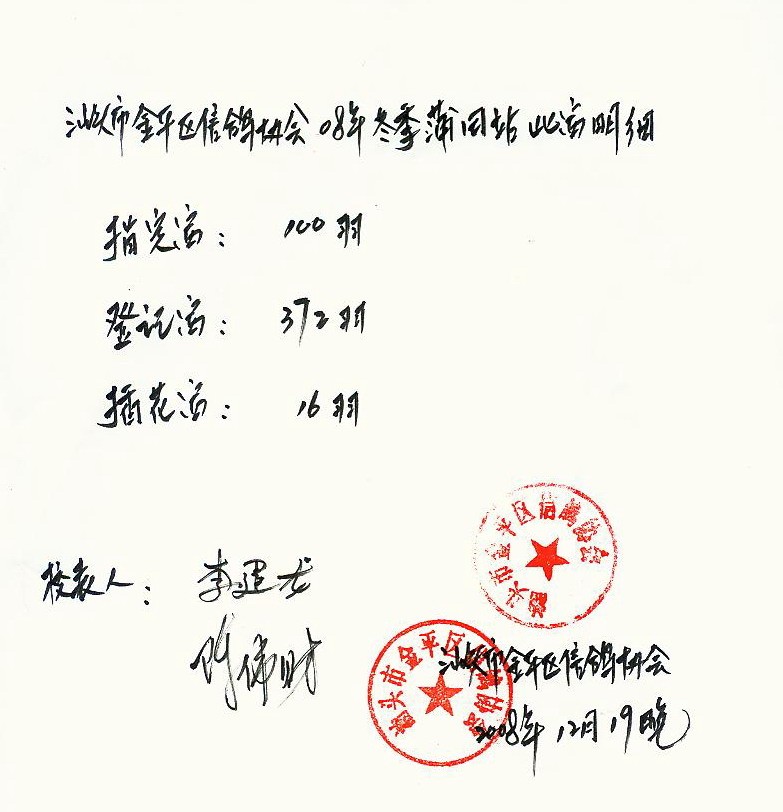 汕头市金平区信鸽协会08年冬季蒲田站比赛明细
指定赛: 100羽
登记赛: 372羽
插花赛: 16羽
校表人: 李建龙
陈伟财
汕头市金平区信鸽协会
汕头市金平区信鸽协会
汕头市金平区信鸽协会
2008年12月19晚